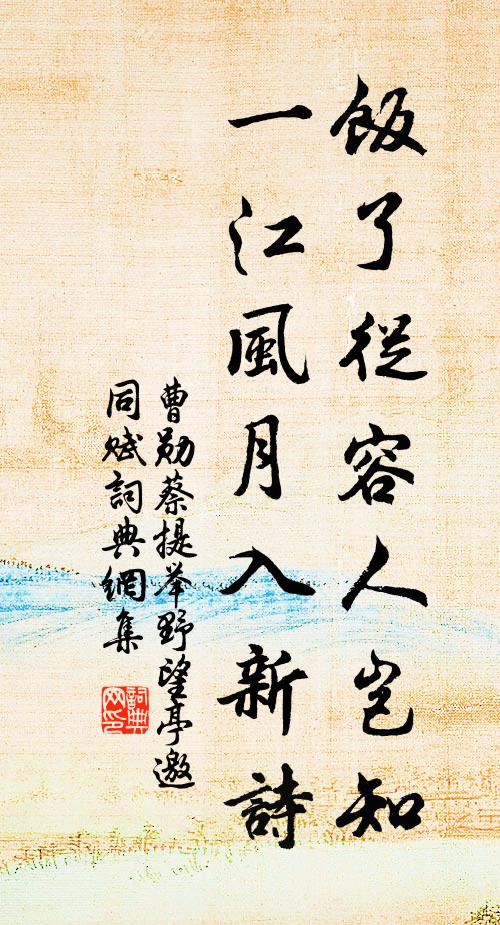 飯了從容人豈知
一江風月入新詩
曹勛蔡提举野望亭邀
同賦詞典網集
詞典
网印